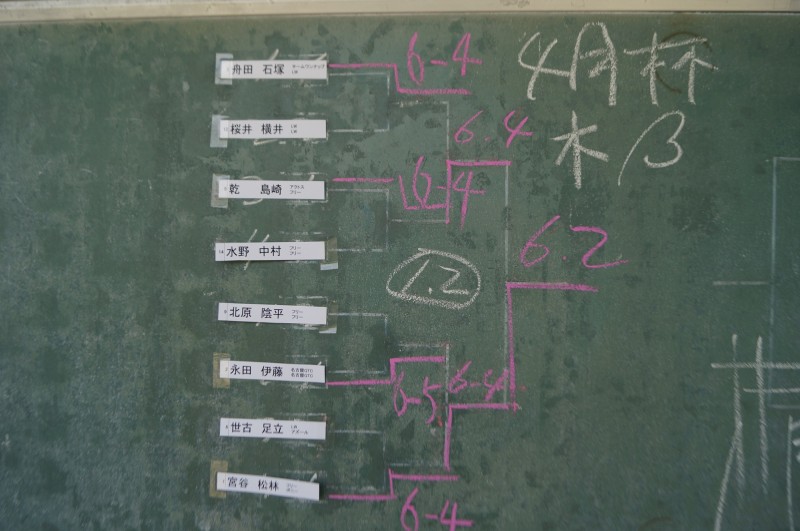 舟田 石塚
6-4
4月杯
桜井 横井
6.4
木 β
乾 島崎
6-4
水野 中村 フリー
フリー
6.2
1.2
北原 陰平 フリー
フリー
永田 伊藤
6-5
6-4
世古 足立
宮谷 松林
6-4